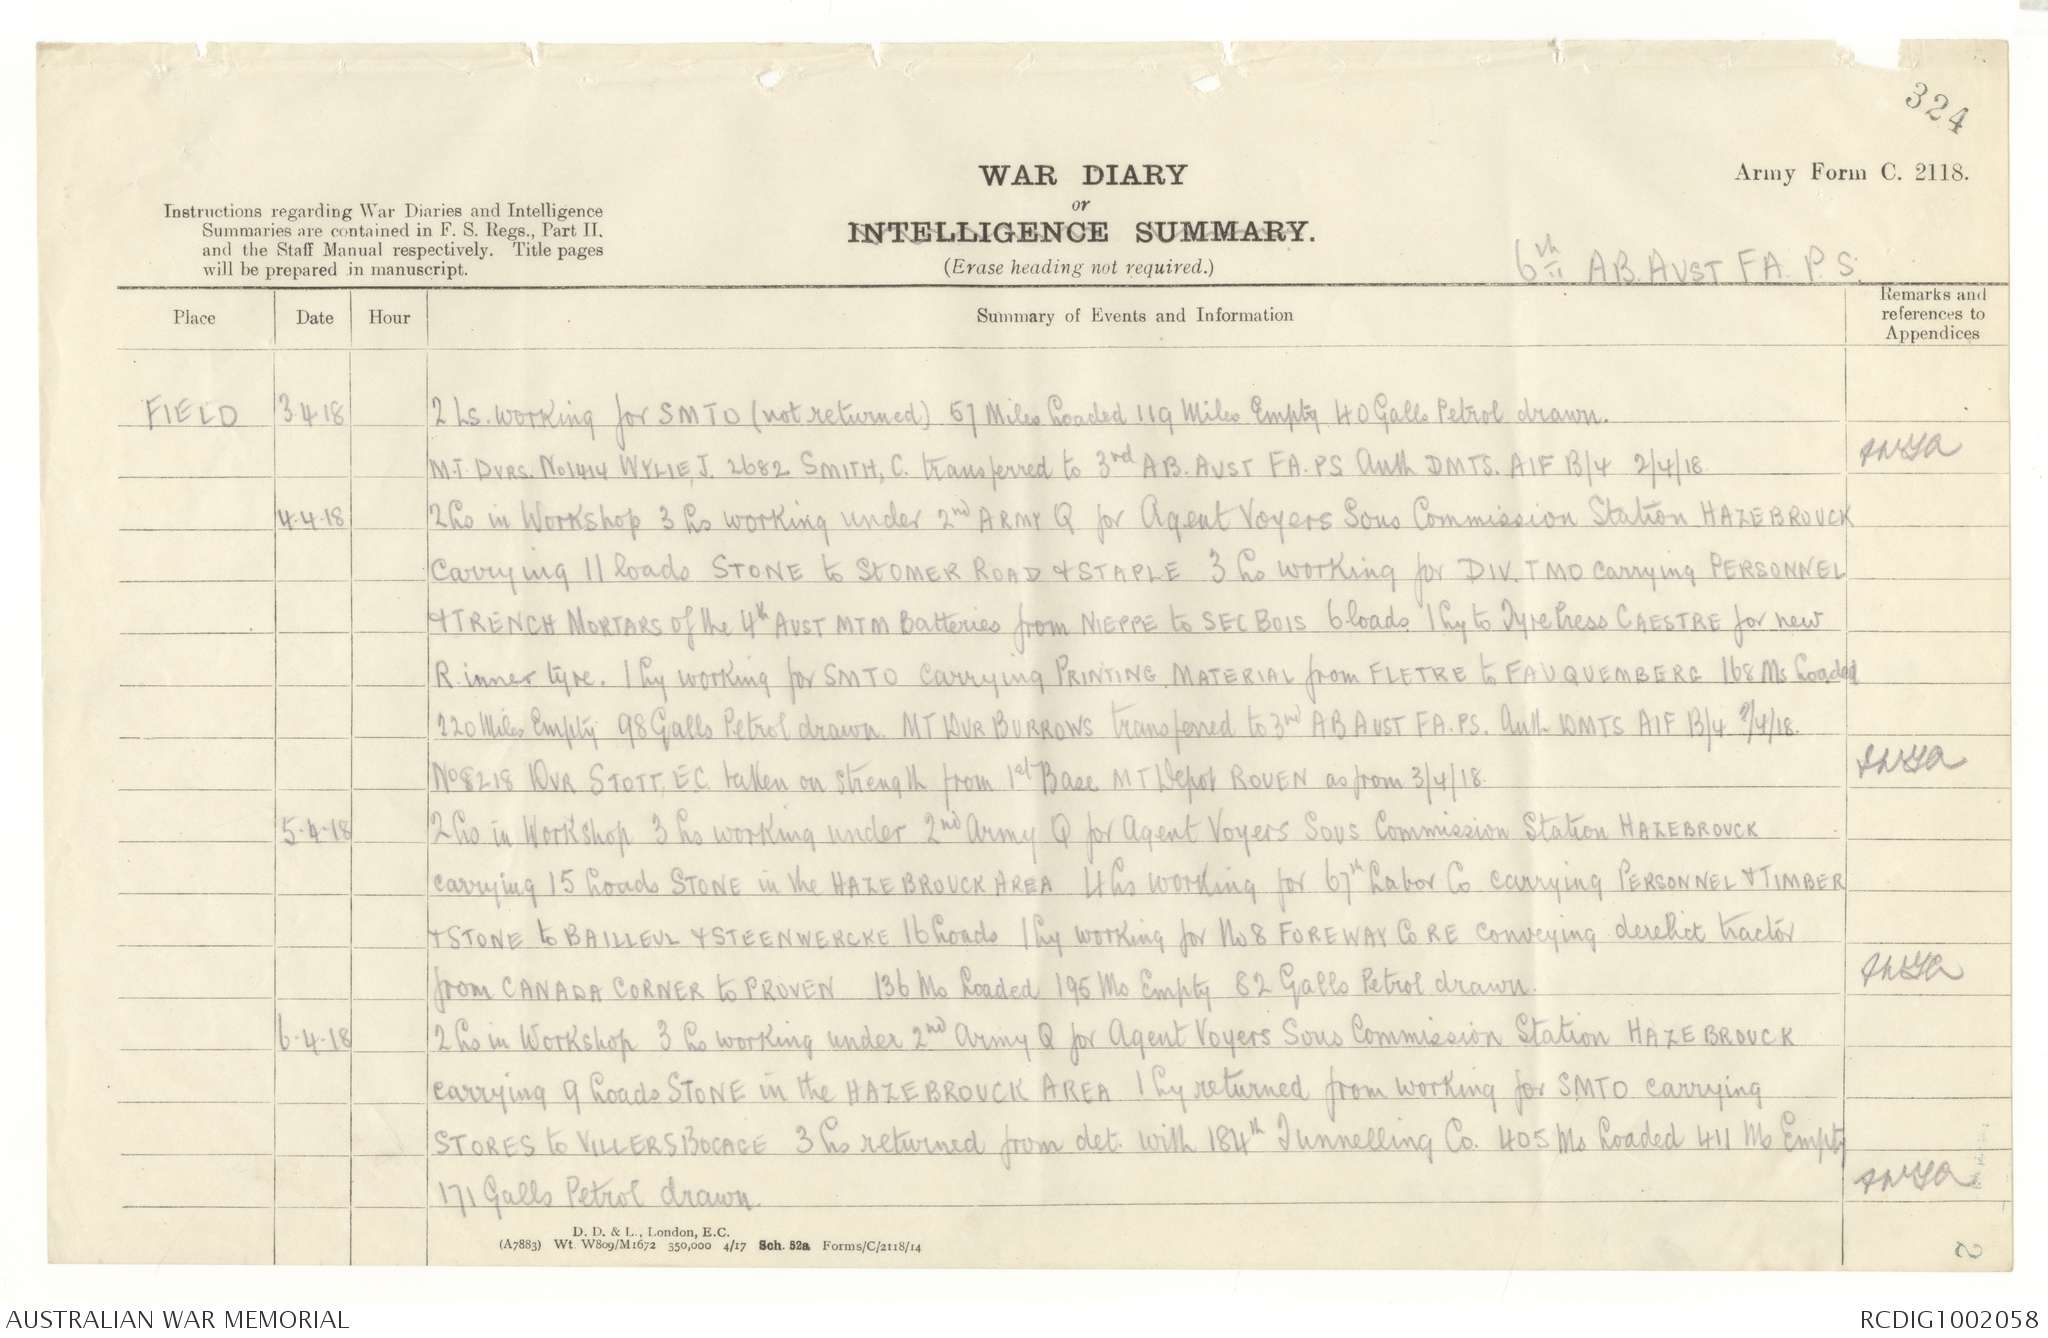 324
WAR DIARY
or
INTELLIGENCE SUMMARY.
(Erase heading not required.)
Army Form C. 2118.
Instructions regarding War Diaries and Intelligence
Summaries are contained in F. S. Regs., Part II.
and the Staff Manual respectively. Title pages
will be prepared in manuscript.
6th AB. AUST FA. P.S.
Place Date Hour Summary of Events and Information Remarks and references to Appendices
FIELD 3.4.18 2 Ls. working for SMTO (not returned) 57 Miles Loaded 119 Miles Empty 40 Galls Petrol drawn.
M.T. DVRS. No 1414 WYLIE, J. 2682 SMITH, C. transferred to 3rd AB. AUST FA. PS Auth DMTS. AIF B/4 2/4/18.
4.4.18 2 Ls in Workshop 3 Ls working under 2nd ARMY Q for Agent Voyers Sous Commission Station HAZEBROUCK
carrying 11 loads STONE to ST OMER ROAD & STAPLE 3 Ls working for DIV. TMO carrying PERSONNEL
& TRENCH MORTARS of the 4th AUST MTM Batteries from NIEPPE to SEC BOIS 6 loads 1 Ly to Tyre Press CAESTRE for new
R. inner tyre. 1 Ly working for SMTO carrying PRINTING MATERIAL from FLETRE to FAUQUEMBERG 168 Ms Loaded
220 Miles Empty 98 Galls Petrol drawn. MT DVR BURROWS transferred to 3rd AB AUST FA. PS. Auth DMTS AIF B/4 /4/18.
No 8218 DVR STOTT, E.C. taken on strength from 1st Base MT Depot ROUEN as from 3/4/18.
5.4.18 2 Ls in Workshop 3 Ls working under 2nd Army Q for Agent Voyers Sous Commission Station HAZEBROUCK
carrying 15 Loads STONE in the HAZEBROUCK AREA 4 Ls working for 67th Labor Co carrying PERSONNEL & TIMBER
& STONE to BAILLEUL & STEENWERCKE 16 Loads 1 Ly working for No 8 FOREWAY Co RE conveying derelict tractor
from CANADA CORNER to PROVEN 136 Ms Loaded 195 Ms Empty 82 Galls Petrol drawn.
6.4.18 2 Ls in Workshop 3 Ls working under 2nd Army Q for Agent Voyers Sous Commission Station HAZEBROUCK
carrying 9 Loads STONE in the HAZEBROUCK AREA 1 Ly returned from working for SMTO carrying
STORES to VILLERS BOCAGE 3 Ls returned from det. with 184th Tunnelling Co. 405 Ms Loaded 411 Ms Empty
171 Galls Petrol drawn.
D. D. & L., London, E.C.
(A7883) Wt. W809/M1672 350,000 4/17 Sch. 52a Forms/C/2118/14
2
AUSTRALIAN WAR MEMORIAL
RCDIG1002058